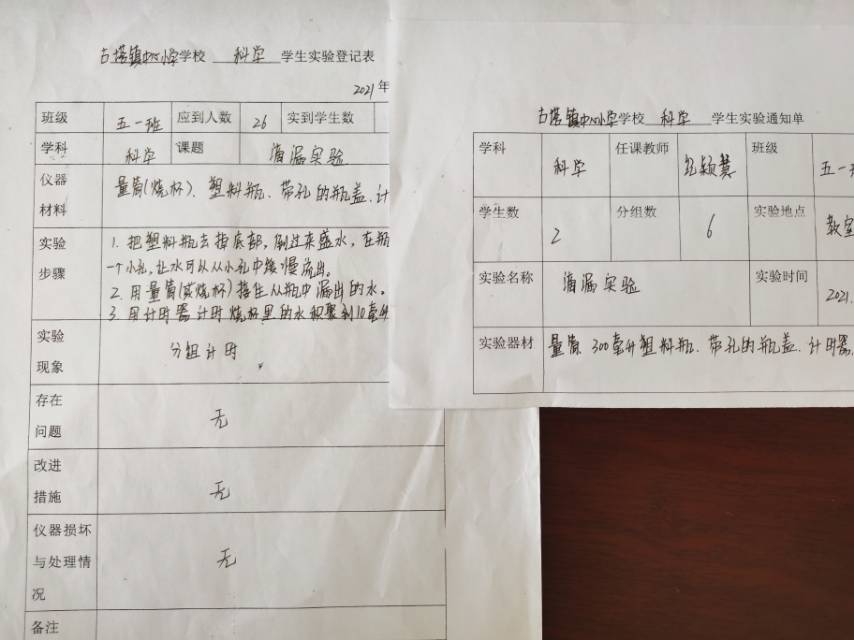 古塔镇中心小学学校 科学 学生实验登记表
2021年
班级 五一班 应到人数 26 实到学生数
学科 科学 课题 滴漏实验
仪器材料 量筒(烧杯)、塑料瓶、带孔的瓶盖、计
实验步骤 1. 把塑料瓶去掉底部,倒过来盛水,在瓶
一个小孔,让水可以从小孔中缓慢流出。
2. 用量筒(或烧杯)接住从瓶中漏出的水。
3. 用计时器计时烧杯里的水积聚到10毫升
实验现象 分组计时
存在问题 无
改进措施 无
仪器损坏与处理情况 无
备注
古塔镇中心小学学校 科学 学生实验通知单
学科 科学 任课教师 颖 班级 五一班
学生数 2 分组数 6 实验地点 教室
实验名称 滴漏实验 实验时间 2021.
实验器材 量筒 300毫升塑料瓶、带孔的瓶盖、计时器、